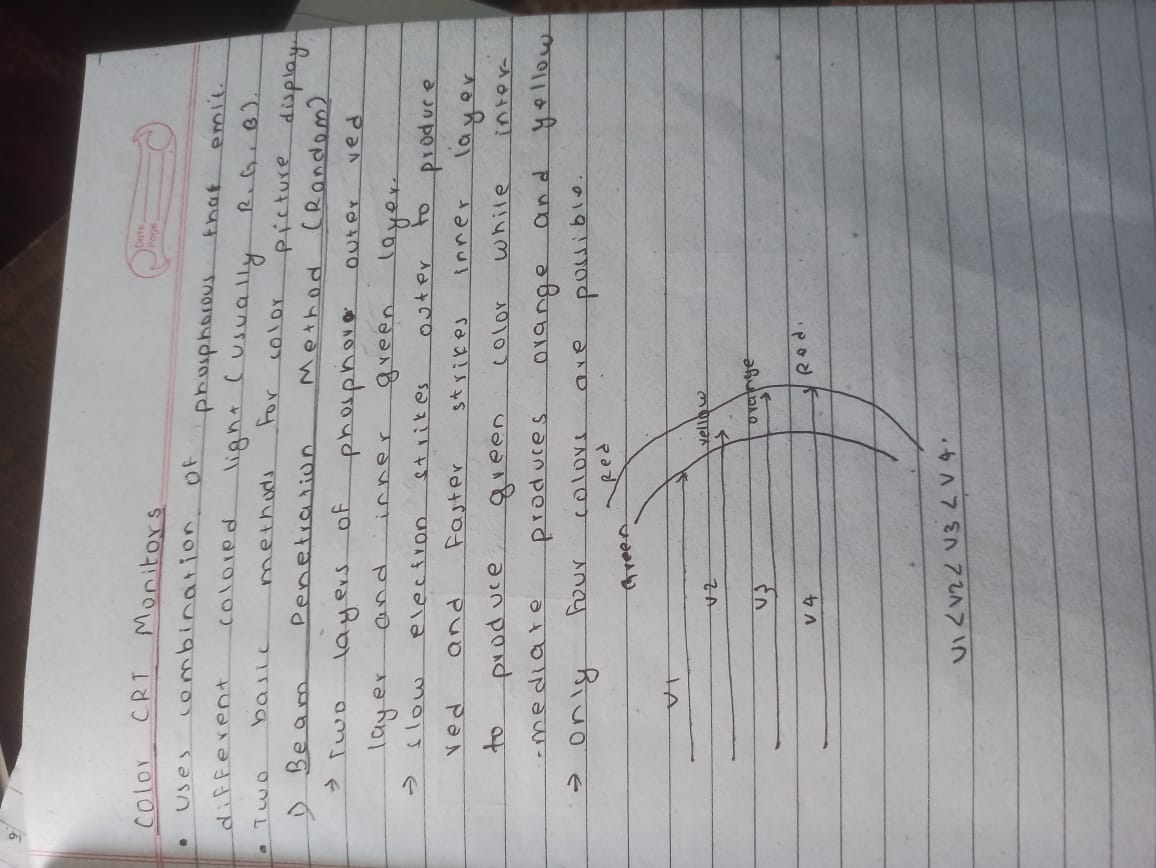 Date
Page
Color CRT Monitors
• Uses combination of phosphorous that emit.
different colored light (usually R.G.B).
• Two basic methods for color picture display
1) Beam penetration Method (Random)
→ Two layers of phosphor outer red
layer and inner green layer.
→ slow electron strikes outer to produce
red and faster strikes inner layer
to produce green color while inter-
-mediate produces orange and yellow
→ only four colors are possible.
Red
Green
V1
V2 yellow
V3 orange
V4 Red.
V1 < V2 < V3 < V4.